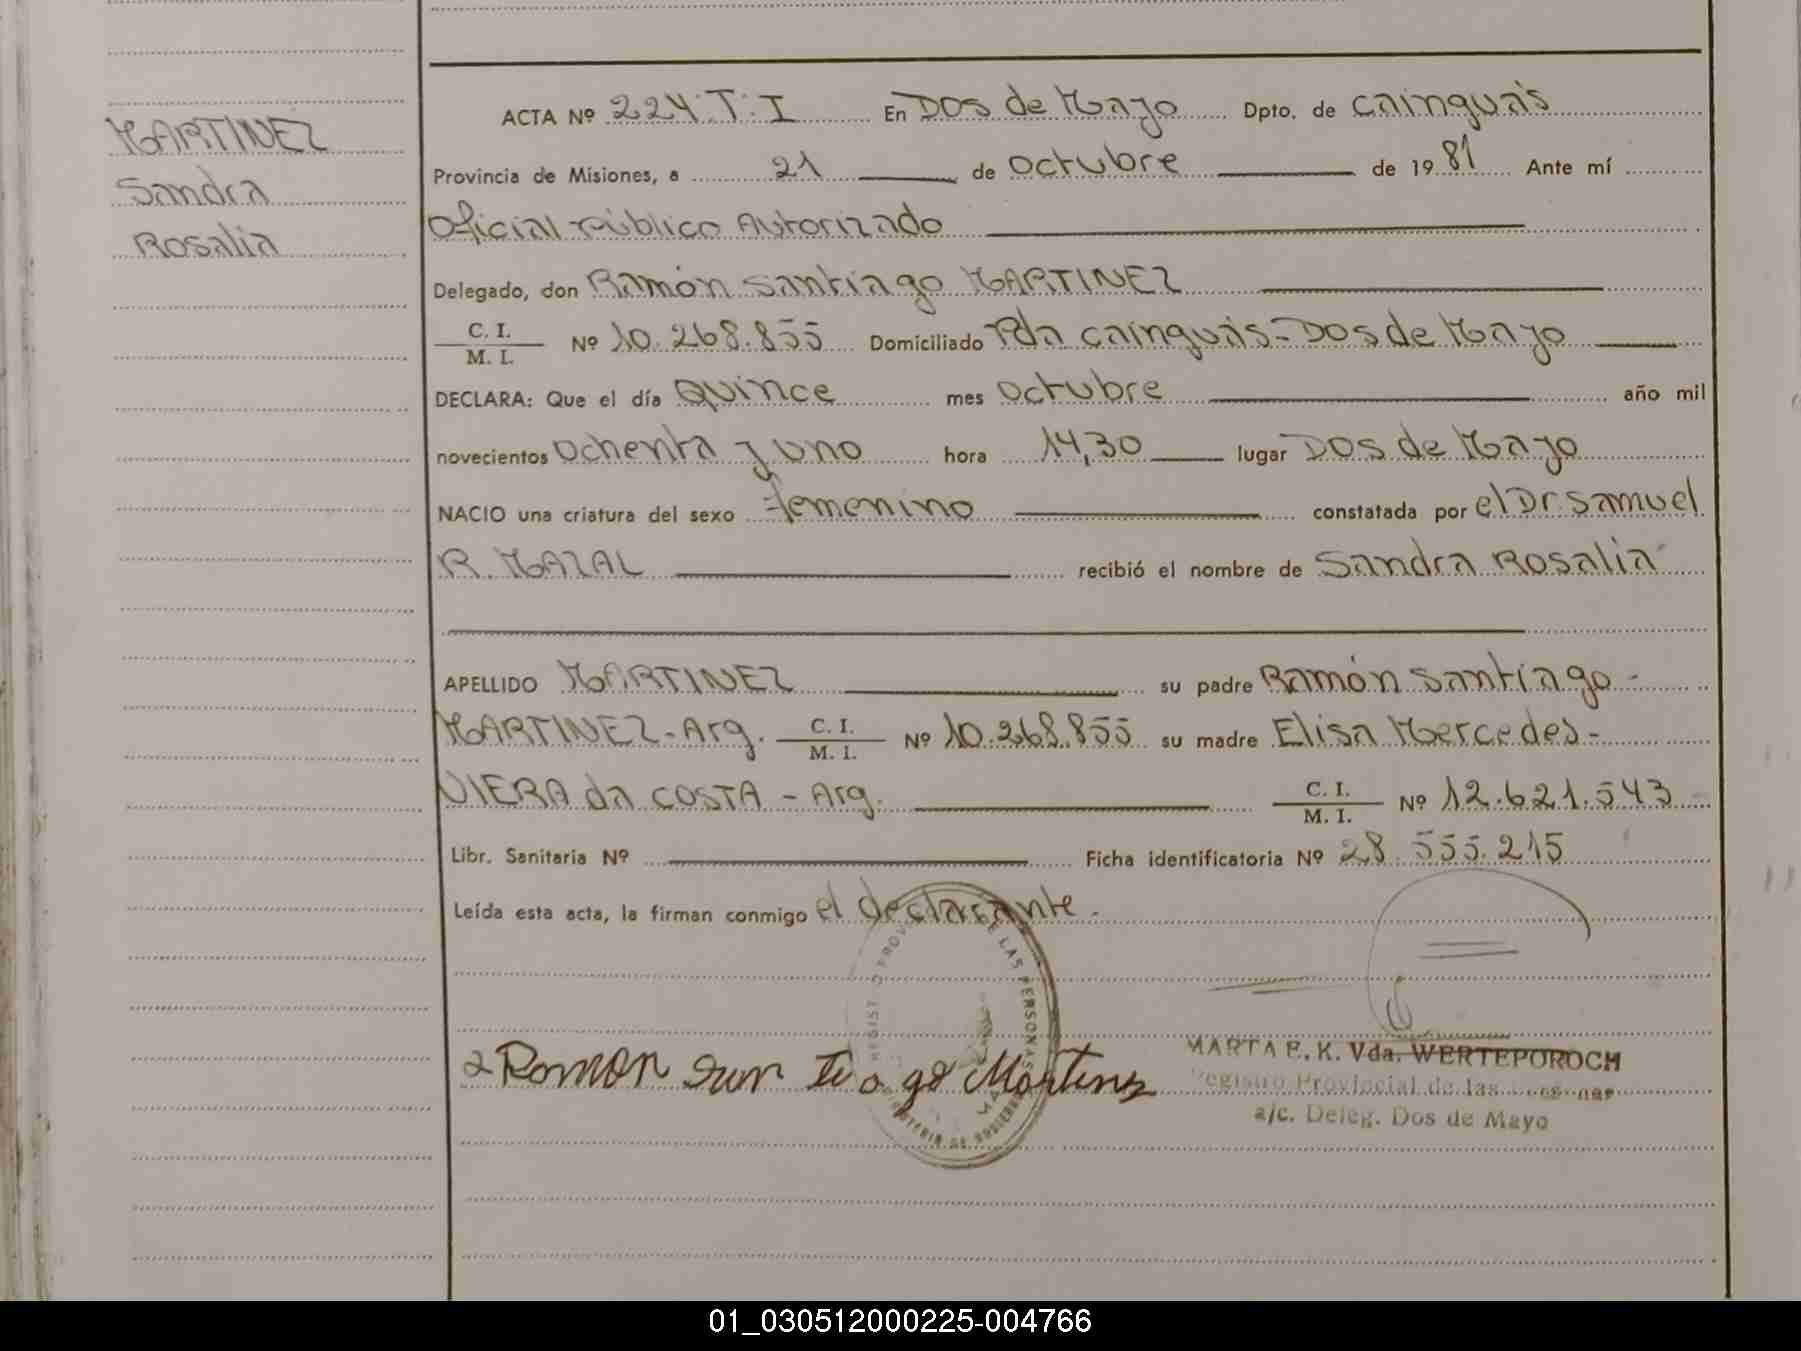 MARTINEZ
Sandra
Rosalia
ACTA Nº 224.T.I En Dos de Mayo Dpto. de Cainguás
Provincia de Misiones, a 21 de Octubre de 1981 Ante mí
Oficial Público Autorizado
Delegado, don Ramón Santiago MARTINEZ
C. I.
M. I. Nº 10.268.855 Domiciliado Pda Cainguás-Dos de Mayo
DECLARA: Que el día Quince mes Octubre año mil
novecientos Ochenta y uno hora 14,30 lugar Dos de Mayo
NACIO una criatura del sexo femenino constatada por el Dr. Samuel
R. MAZAL recibió el nombre de Sandra Rosalia
APELLIDO MARTINEZ su padre Ramón Santiago -
MARTINEZ - Arg. C. I.
M. I. Nº 10.268.855 su madre Elisa Mercedes -
VIERA da COSTA - Arg. C. I.
M. I. Nº 12.621.543
Libr. Sanitaria Nº Ficha identificatoria Nº 28.555.215
Leída esta acta, la firman conmigo el declarante.
Ramon San tia go Martinez
MARTA E. K. Vda. WERTEPOROCH
Registro Provincial de las
a/c. Deleg. Dos de Mayo
01_030512000225-004766